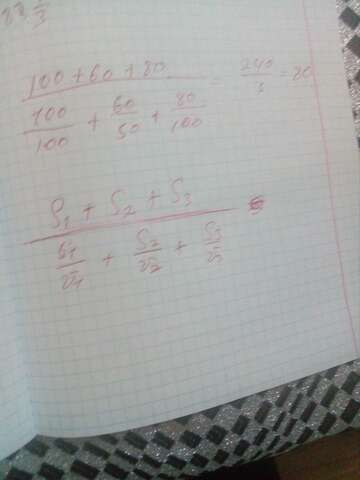 100 + 60 + 80 / 100/100 + 60/50 + 80/100 = 240/3 = 80
S₁ + S₂ + S₃ / S₁/v₁ + S₂/v₂ + S₃/v₃ =